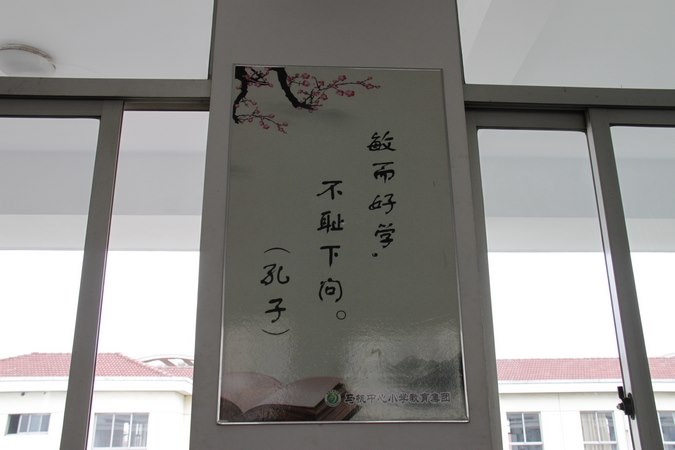 敏而好学，
不耻下问。
（孔子）
马杭中心小学教育集团